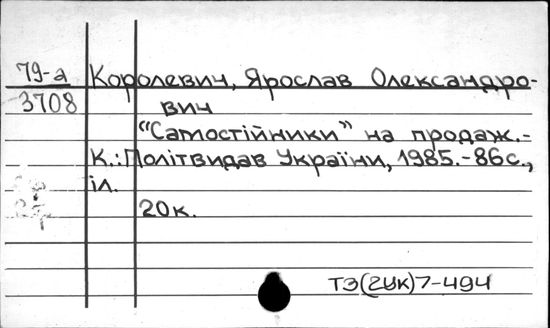 79-а
3708
Королевич, Ярослав Олександро-
вич
"Самостійники" на продаж.-
К.: Політвидав України, 1985.-86с.,
іл.
20к.
ТЗ(2УК)7-494